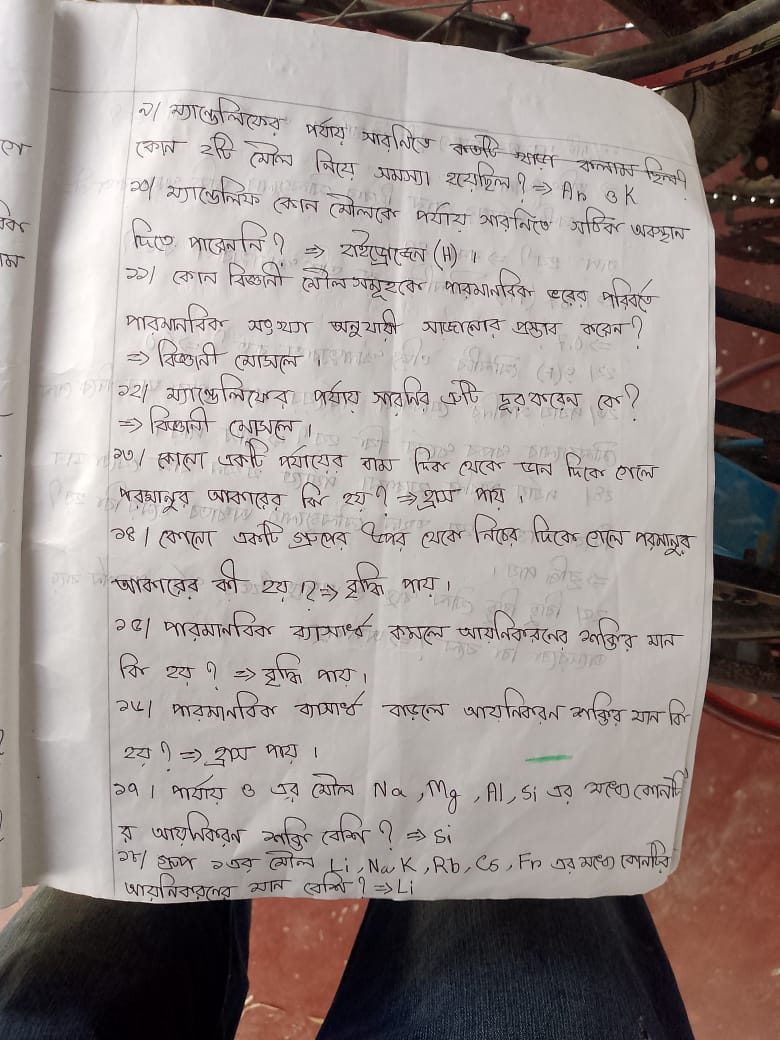 PHOE
৯/ ম্যান্ডেলিফের পর্যায় সারনিতে কতটি খাড়া কলাম ছিল?
কোন ২টি মৌল নিয়ে সমস্যা হয়েছিল? ⇒ Ar ও K
১০/ ম্যান্ডেলিফ কোন মৌলকে পর্যায় সারনিতে সঠিক অবস্থান
দিতে পারেননি? ⇒ হাইড্রোজেন (H) ।
১১/ কোন বিজ্ঞানী মৌলসমূহকে পারমানবিক ভরের পরিবর্তে
পারমানবিক সংখ্যা অনুযায়ী সাজানোর প্রস্তাব করেন?
⇒ বিজ্ঞানী মোসলে ।
১২/ ম্যান্ডেলিফের পর্যায় সারনির ত্রুটি দূর করেন কে?
⇒ বিজ্ঞানী মোসলে ।
১৩/ কোনো একটি পর্যায়ের বাম দিক থেকে ডান দিকে গেলে
পরমানুর আকারের কি হয়? ⇒ হ্রাস পায় ।
১৪/ কোনো একটি গ্রুপের উপর থেকে নিচের দিকে গেলে পরমানুর
আকারের কী হয় ।? ⇒ বৃদ্ধি পায় ।
১৫/ পারমানবিক ব্যাসার্ধ কমলে আয়নিকরনের শক্তির মান
কি হয় ? ⇒ বৃদ্ধি পায় ।
১৬/ পারমানবিক ব্যাসার্ধ বাড়লে আয়নিকরন শক্তির মান কি
হয় ? ⇒ হ্রাস পায় ।
১৭ । পর্যায় ৩ এর মৌল Na , Mg , Al , Si এর মধ্যে কোনটি
র আয়নিকরন শক্তি বেশি ? ⇒ Si
১৮/ গ্রুপ ১এর মৌল Li , Na K , Rb , Cs , Fr এর মধ্যে কোনটির
আয়নিকরনের মান বেশি ? ⇒ Li